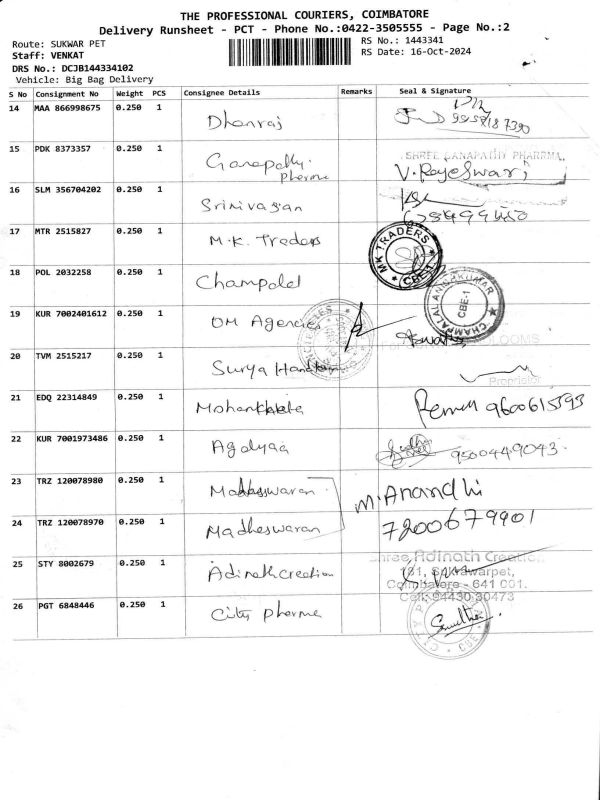 THE PROFESSIONAL COURIERS, COIMBATORE
Delivery Runsheet - PCT - Phone No.:0422-3505555 - Page No.:2
Route: SUKWAR PET
RS No.: 1443341
Staff: VENKAT
RS Date: 16-Oct-2024
DRS No.: DCJB144334102
Vehicle: Big Bag Delivery
S No Consignment No Weight PCS Consignee Details Remarks Seal & Signature
14 MAA 866998675 0.250 1 Dhanraj
15 PDK 8373357 0.250 1 Ganapathy Pharma SHREE GANAPATHY PHARRMA
V. Rajeswari
16 SLM 356704202 0.250 1 Srinivasan
17 MTR 2515827 0.250 1 M.K. Traders MK TRADERS CBE-1
18 POL 2032258 0.250 1 Champalal CHAMPALAL ANNAKUMAR CBE-1
19 KUR 7002401612 0.250 1 OM Agencies
20 TVM 2515217 0.250 1 Surya LOOMS
Proprietor
21 EDQ 22314849 0.250 1 9600615393
22 KUR 7001973486 0.250 1 Agalyaa 9500449043
23 TRZ 120078980 0.250 1 Madheswaran M. Anandhi
24 TRZ 120078970 0.250 1 Madheswaran 7200679901
25 STY 8002679 0.250 1 Adinath Creation Shree Adinath Creation
181, Sukrawarpet,
Coimbatore - 641 001.
Cell: 94430 30473
26 PGT 6848446 0.250 1 City Pharma CITY CBE